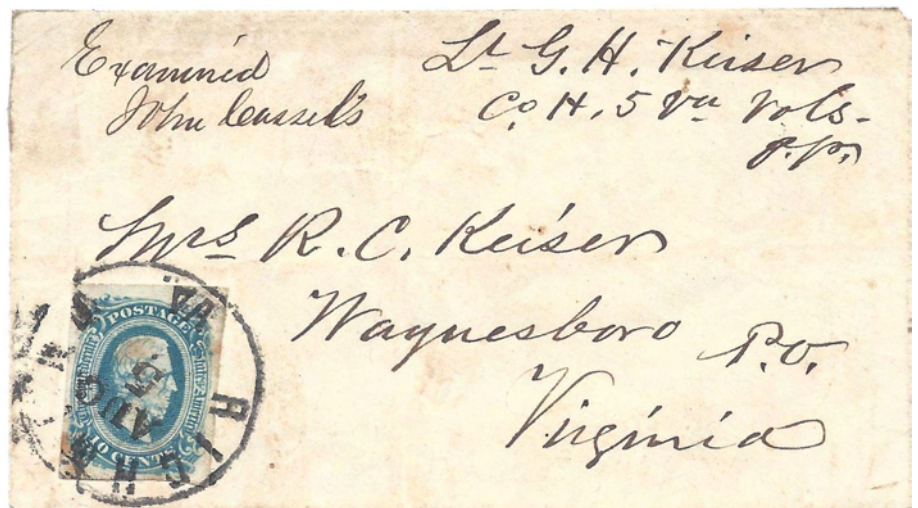 Examined
John Cassels
Lt G. H. Keiser
Co H, 5 Va Vols.
P.P.
Mrs R. C. Keiser
Waynesboro P.O.
Virginia
POSTAGE
10 CENTS
RICHMOND VA.
AUG
5